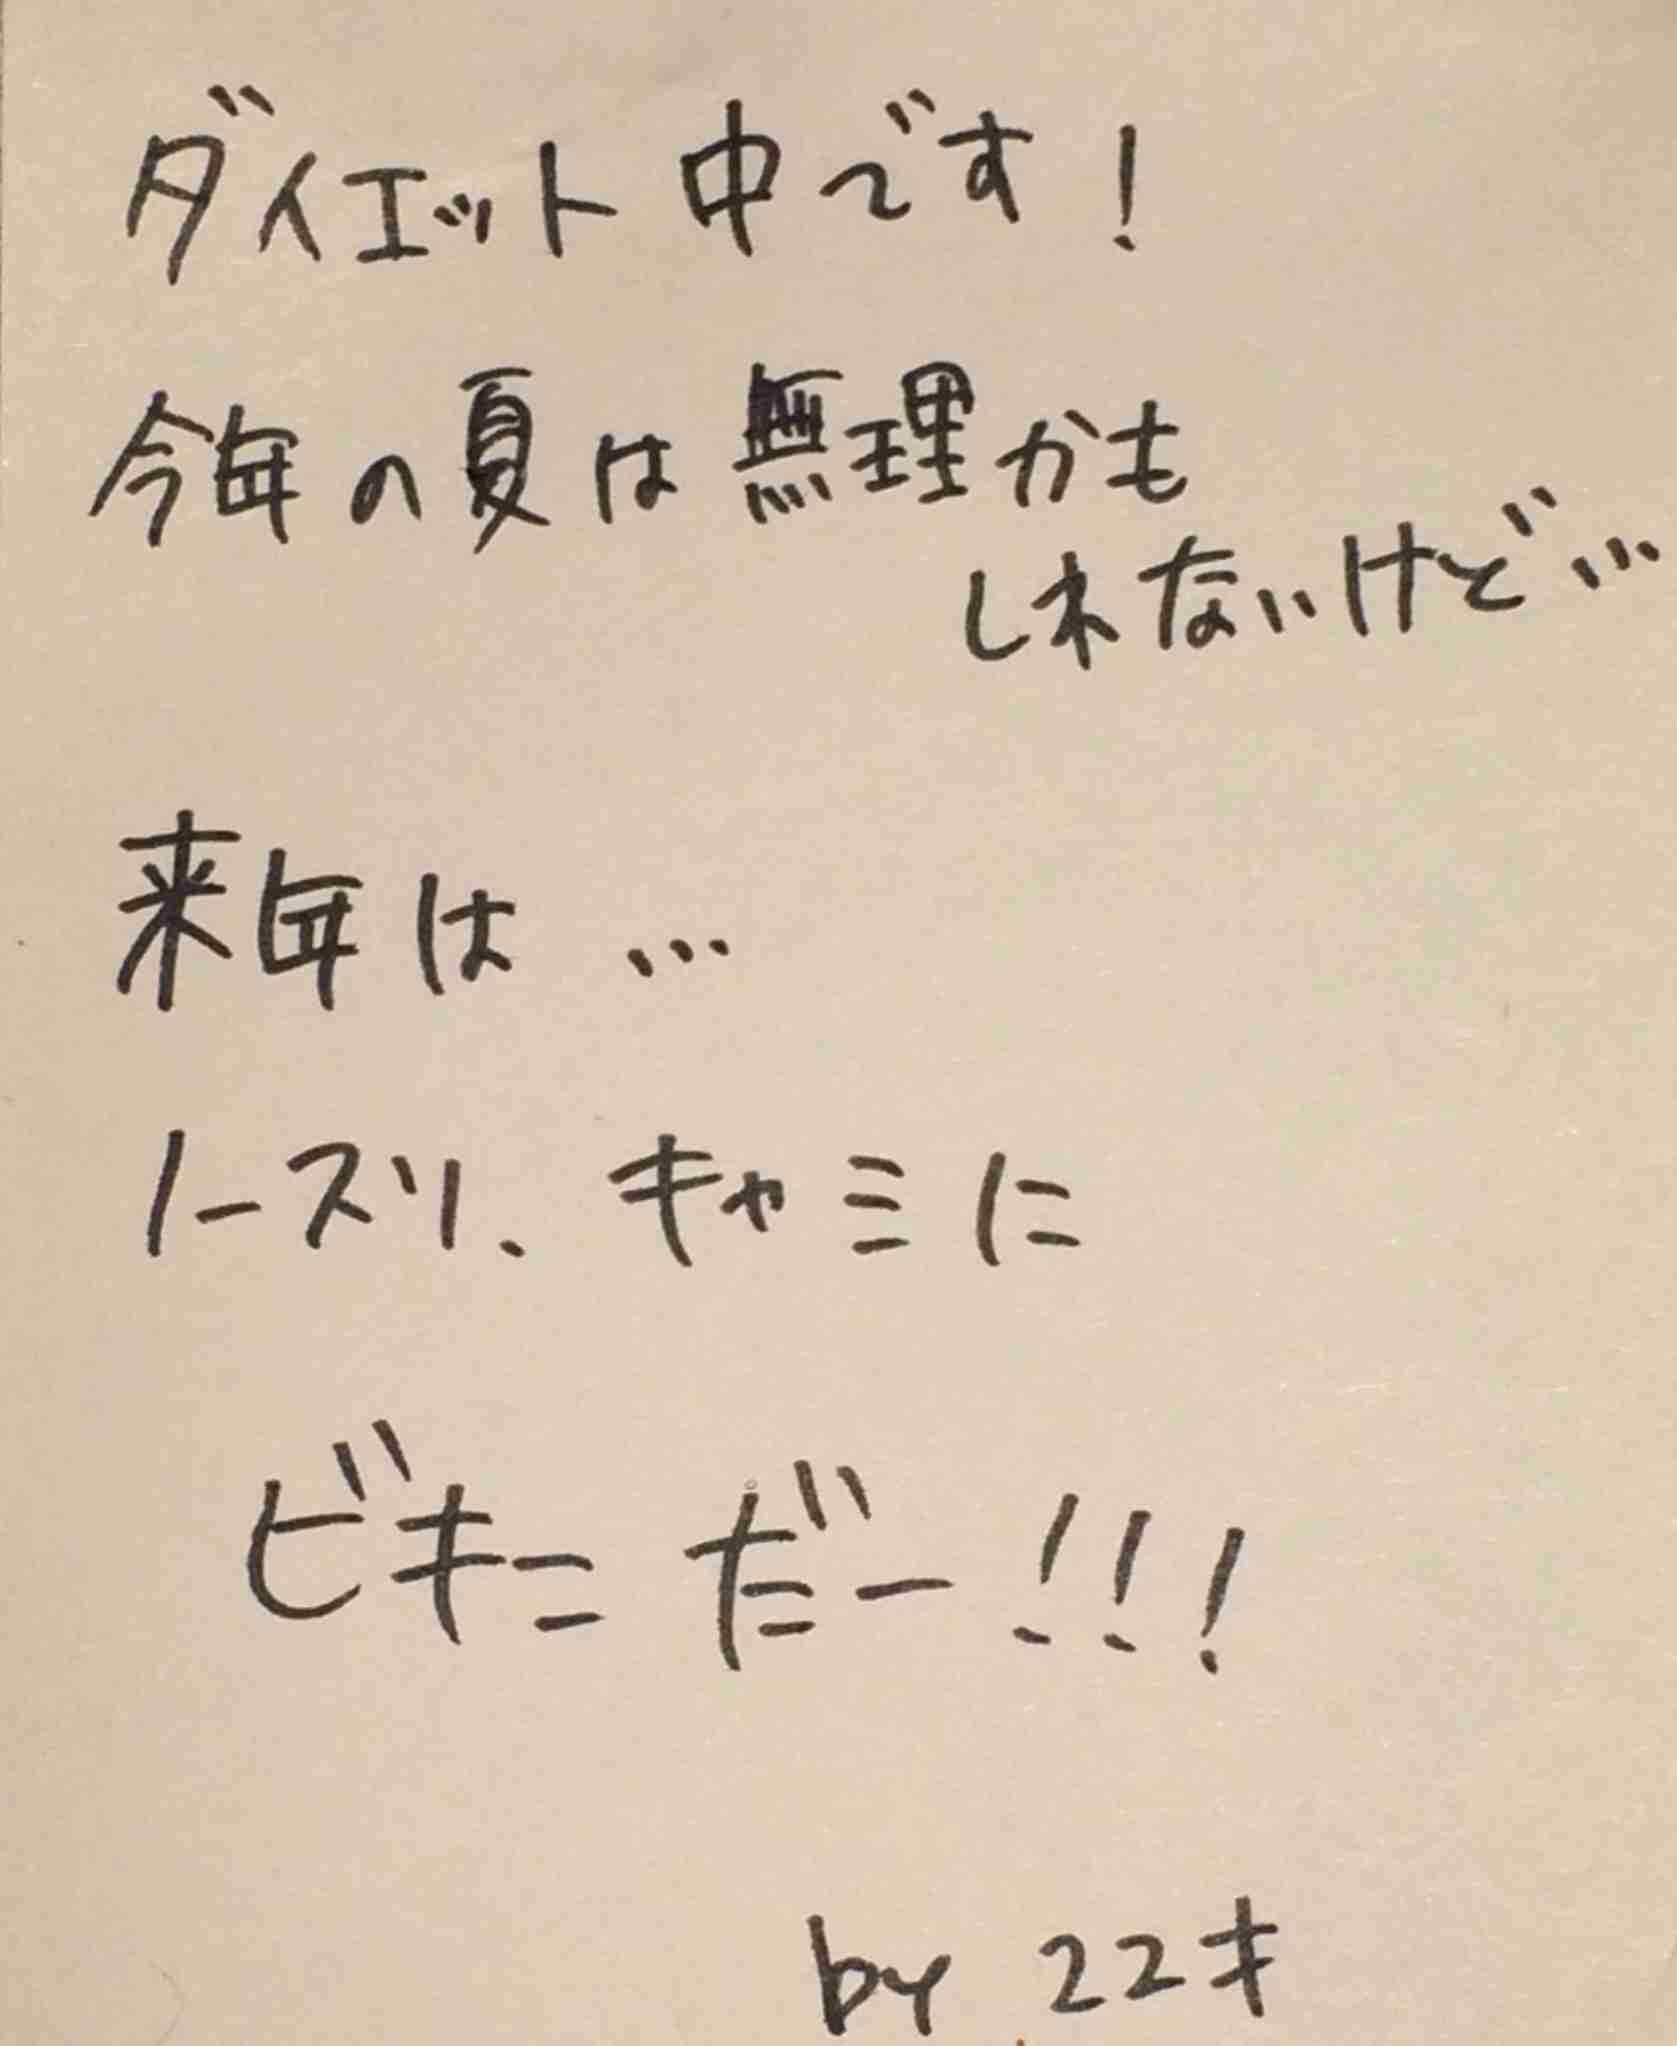 ダイエット中です!
今年の夏は無理かも
しれないけど…
来年は…
ノースリ、キャミに
ビキニだー!!!
by 22才